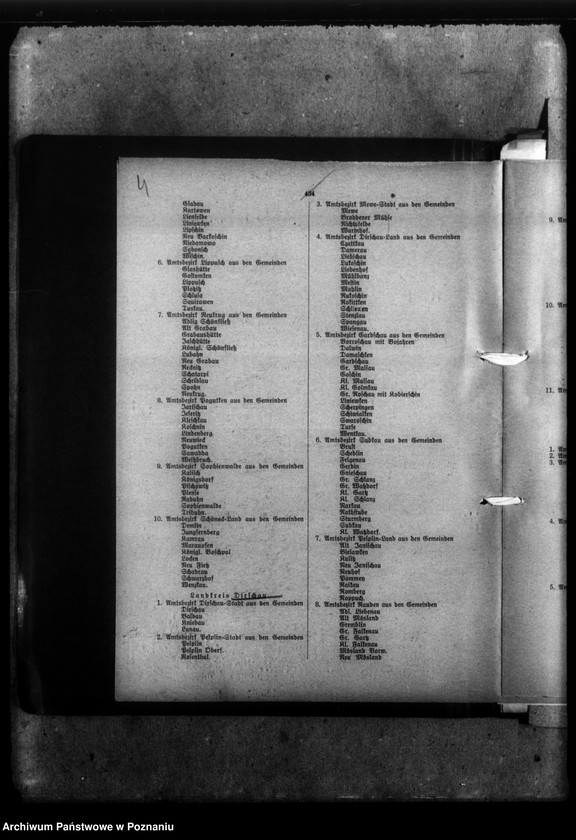 4
434
Gladau
Kartowen
Lienfelde
Liniewken
Lipschin
Neu Barkoschin
Niedamowo
Sybonsch
Wischin.
6. Amtsbezirk Lippusch aus den Gemeinden
Glashütte
Gostomken
Lippusch
Plotzitz
Schlusa
Squirawen
Tuschkau.
7. Amtsbezirk Neukrug aus den Gemeinden
Adlig Schönfließ
Alt Grabau
Grabaushütte
Jaschhütte
Königl. Schönfließ
Lubahn
Neu Grabau
Recknitz
Schatarpi
Schridlau
Spohn
Neukrug.
8. Amtsbezirk Pogutken aus den Gemeinden
Jaruschau
Jeseritz
Kleschkau
Koschmin
Lindenberg
Neuwieck
Pogutken
Sawadda
Weißbruch.
9. Amtsbezirk Sophienwalde aus den Gemeinden
Kalisch
Königsdorf
Plense
Rabuhn
Sophienwalde
Trzebuhn.
10. Amtsbezirk Schöneck-Land aus den Gemeinden
Demlin
Jungfernberg
Kamrau
Königl. Boschpol
Locken
Neu Fietz
Schadrau
Schwarzhof
Wenzkau.
Landkreis Dirschau
1. Amtsbezirk Dirschau-Stadt aus den Gemeinden
Dirschau
Baldau
Kniebau
Lunau.
2. Amtsbezirk Pelplin-Stadt aus den Gemeinden
Pelplin
Pelplin Oberf.
Rosenthal.
3. Amtsbezirk Mewe-Stadt aus den Gemeinden
Mewe
Broddener Mühle
Nichtsfelde
Warmhof.
4. Amtsbezirk Dirschau-Land aus den Gemeinden
Czattkau
Damerau
Liebschau
Lukoschin
Liebenhof
Mühlbanz
Mestin
Mahlin
Rukoschin
Rokittken
Schliwen
Stenzlau
Spangau
Wiesenau.
5. Amtsbezirk Gardschau aus den Gemeinden
Borroschau mit Bojahren
Dalwin
Damaschken
Gardschau
Gr. Malsau
Goschin
Kl. Malsau
Kl. Golmkau
Gr. Roschau mit Kobierschin
Liniewken
Scherpingen
Schiwialken
Swaroschin
Turse
Wentkau.
6. Amtsbezirk Subkau aus den Gemeinden
Brust
Felgenau
Gerdin
Gnieschau
Gr. Schlanz
Gr. Watzdorf
Kl. Gartz
Kl. Schlanz
Narkau
Rathstube
Sturmberg
Subkau
Kl. Watzdorf.
7. Amtsbezirk Pelplin-Land aus den Gemeinden
Alt Janischau
Bielawken
Kulitz
Neu Janischau
Neuhof
Pommey
Raikau
Romberg
Roppuch.
8. Amtsbezirk Rauden aus den Gemeinden
Adl. Liebenau
Alt Mösland
Gremblin
Gr. Falkenau
Gr. Gartz
Kl. Falkenau
Mösland Vorw.
Neu Mösland
9.
10.
11.
1.
2.
3.
4.
5.
Archiwum Państwowe w Poznaniu